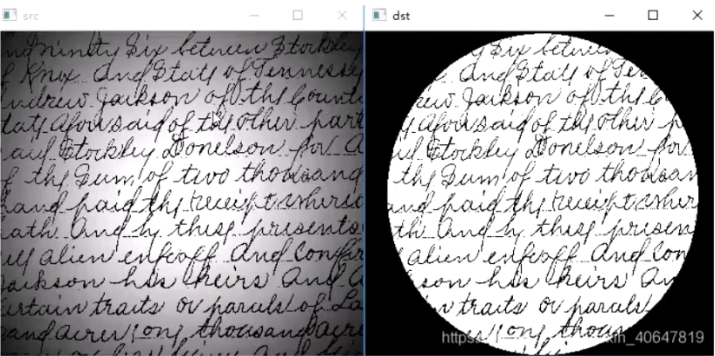 src
dst
and ninety Six between Stockley
of Knox. And State of Tennessy
Andrew Jackson of the County
State Aforesaid of the other part
said Stockley Donelson for A
of the Sum of two thousand
hand paid the receipt wherin
hath And by these presents
self alien enfeoff And Confir
Jackson his heirs And A
certain traits or parcels of La
sand acres long thousand acre
Six between Stockley
And State of Ten
Jackson of the Co
Aforesaid of the other p
Stockley Donelson for
the Sum of two thousan
paid the receipt wher
And by these presents
alien enfeoff And Con
son his heirs An
traits or parcels
long thous
https:
in_40647819